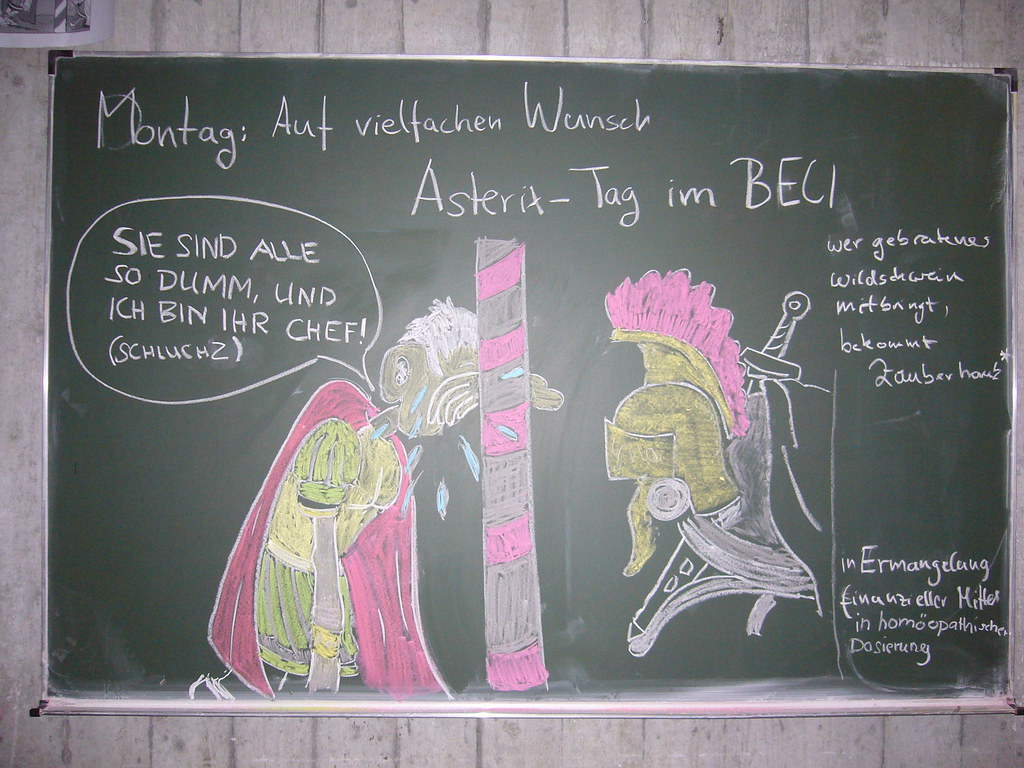 Montag: Auf vielfachen Wunsch
Asterix-Tag im BECI
SIE SIND ALLE
SO DUMM, UND
ICH BIN IHR CHEF!
(SCHLUCHZ)
wer gebratenes
Wildschwein
mitbringt,
bekommt
Zaubertrank*
in Ermangelung
finanzieller Mittel
in homöopathischer
Dosierung